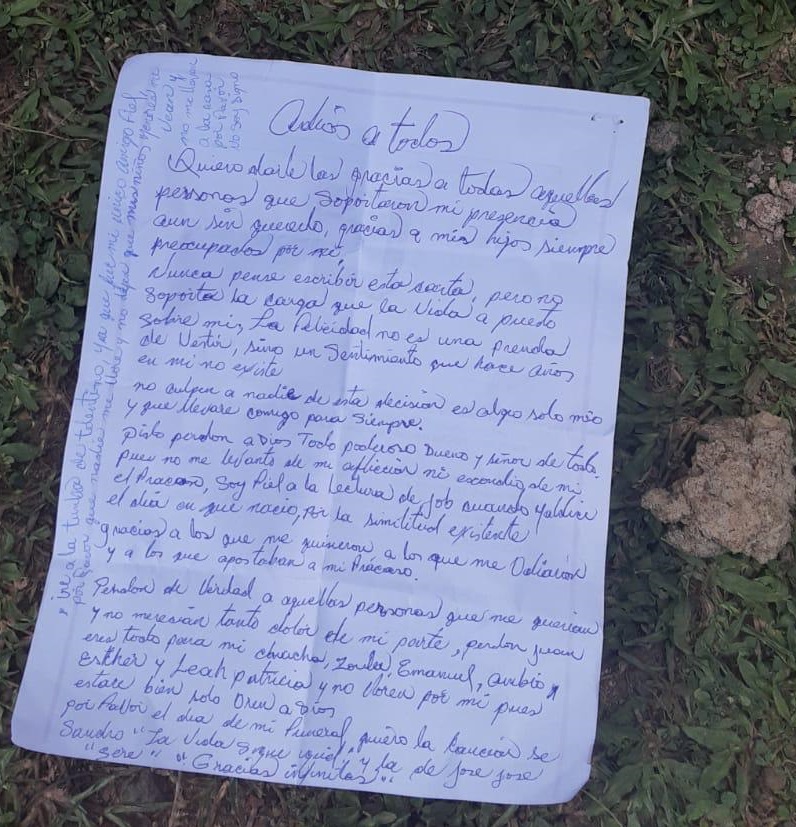 Adiós a todos
Quiero darle las gracias a todas aquellas
personas que soportaron mi presencia
aun sin quererlo, gracias a mis hijos siempre
preocupados por mi.
Nunca pense escribir esta carta, pero no
soporto la carga que la vida a puesto
sobre mi, La Felicidad no es una prenda
de Vestir, sino un Sentimiento que hace años
en mi no existe
no culpen a nadie de esta decisión es algo solo mio
y que llevare conmigo para siempre.
pido perdon a Dios Todo poderoso Dueño y señor de todo.
pues no me levanto de mi aflicción ni escondio de mi
el Fracaso, Soy Fiel a la Lectura de Job cuando maldice
el día en que nacio, por la similitud existente
gracias a los que me quisieron, a los que me Odiaron
y a los que apostaban a mi Fracaso.
Perdon de Verdad a aquellas personas que me querian
y no merecian tanto dolor de mi parte, perdon Juan
eres todo para mi Emanuel,
Esther y Leah patricia y no lloren por mi pues
estare bien solo Oren a Dios
por Favor el dia de mi Funeral, quiero la Cancion de
Sandro "La Vida Sigue igual", y la de jose jose
"Sere" "Gracias infinitas".
ire a la tumba de ya que fue mi unico amigo Fiel
por Favor que nadie me llore y no dejen que mis niños
Vean y
no me lleven
a la
por Favor
no soy Digno